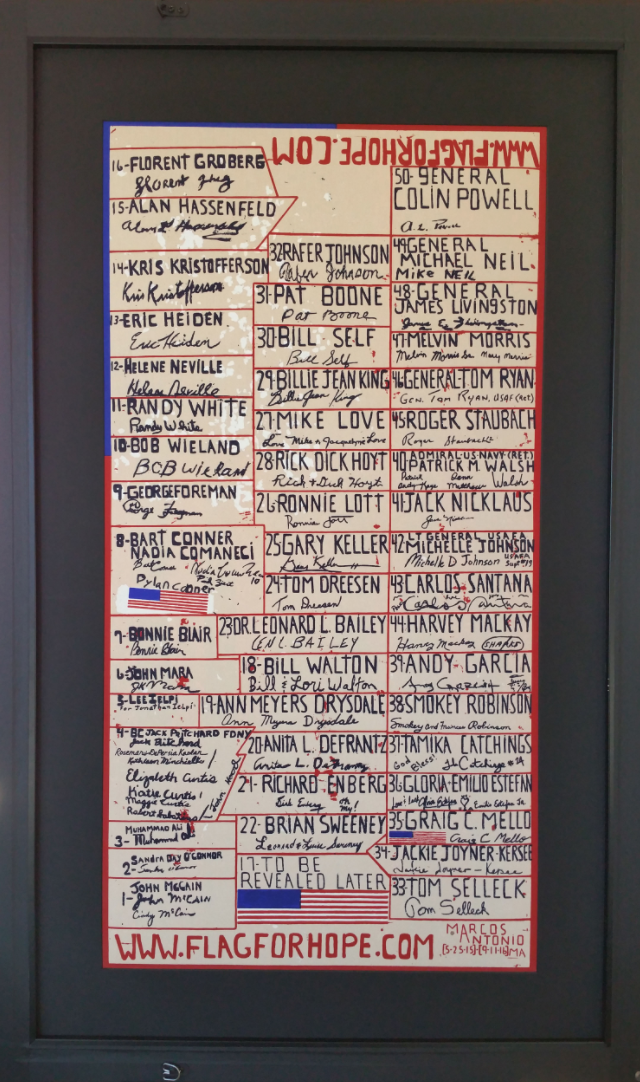 WWW.FLAGFORHOPE.COM
16-FLORENT GROBERG
15-ALAN HASSENFELD
14-KRIS KRISTOFFERSON
Kris Kristofferson
13-ERIC HEIDEN
Eric Heiden
12-HELENE NEVILLE
Helene Neville
11-RANDY WHITE
Randy White
10-BOB WIELAND
BOB Wieland
9-GEORGE FOREMAN
George Foreman
8-BART CONNER
NADIA COMANECI
Dylan Conner
7-BONNIE BLAIR
Bonnie Blair
6-JOHN MARA
5-LEE IELPI
for Jonathan Ielpi
4-BC JACK PRITCHARD FDNY
Jack Pritchard
Elizabeth Curtis
Katie Curtis
Maggie Curtis
MUHAMMAD ALI
3-Muhammad Ali
SANDRA DAY O'CONNOR
2-
JOHN MCCAIN
1-John McCAIN
Cindy McCain
32 RAFER JOHNSON
Rafer Johnson
31-PAT BOONE
Pat Boone
30-BILL SELF
Bill Self
29-BILLIE JEAN KING
Billie Jean King
27-MIKE LOVE
Love Mike n Jacquelyne Love
28-RICK DICK HOYT
Rick & Dick Hoyt
26-RONNIE LOTT
Ronnie Lott
25 GARY KELLER
Gary Keller
24-TOM DREESEN
Tom Dreesen
23 DR. LEONARD L. BAILEY
LEN L. BAILEY
18-BILL WALTON
Bill & Lori Walton
19-ANN MEYERS DRYSDALE
Ann Meyers Drysdale
20-ANITA L. DEFRANTZ
Anita L. DeFrantz
21-RICHARD ENBERG
Dick Enberg Oh my!
22-BRIAN SWEENEY
Leonard & Louise Sweeney
17-TO BE
REVEALED LATER
50-GENERAL
COLIN POWELL
49 GENERAL
MICHAEL NEIL
Mike NEIL
48-GENERAL
JAMES LIVINGSTON
47-MELVIN MORRIS
Melvin Morris Sr. Mary Morris
46 GENERAL TOM RYAN
Gen. Tom Ryan, USAF (Ret)
45 ROGER STAUBACH
Roger Staubach
40 ADMIRAL-US-NAVY (RET.)
PATRICK M. WALSH
41-JACK NICKLAUS
42 LT GENERAL USAFA
MICHELLE JOHNSON
Michelle D Johnson
43 CARLOS SANTANA
Carlos Santana
44 HARVEY MACKAY
Harvey Mackay
39-ANDY GARCIA
38 SMOKEY ROBINSON
Smokey and Frances Robinson
37-TAMIKA CATCHINGS
God Bless! #24
36 GLORIA-EMILIO ESTEFAN
35 CRAIG C. MELLO
Craig C Mello
34-JACKIE JOYNER-KERSEE
Jackie Joyner-Kersee
33 TOM SELLECK
Tom Selleck
WWW.FLAGFORHOPE.COM
MARCOS
ANTONIO